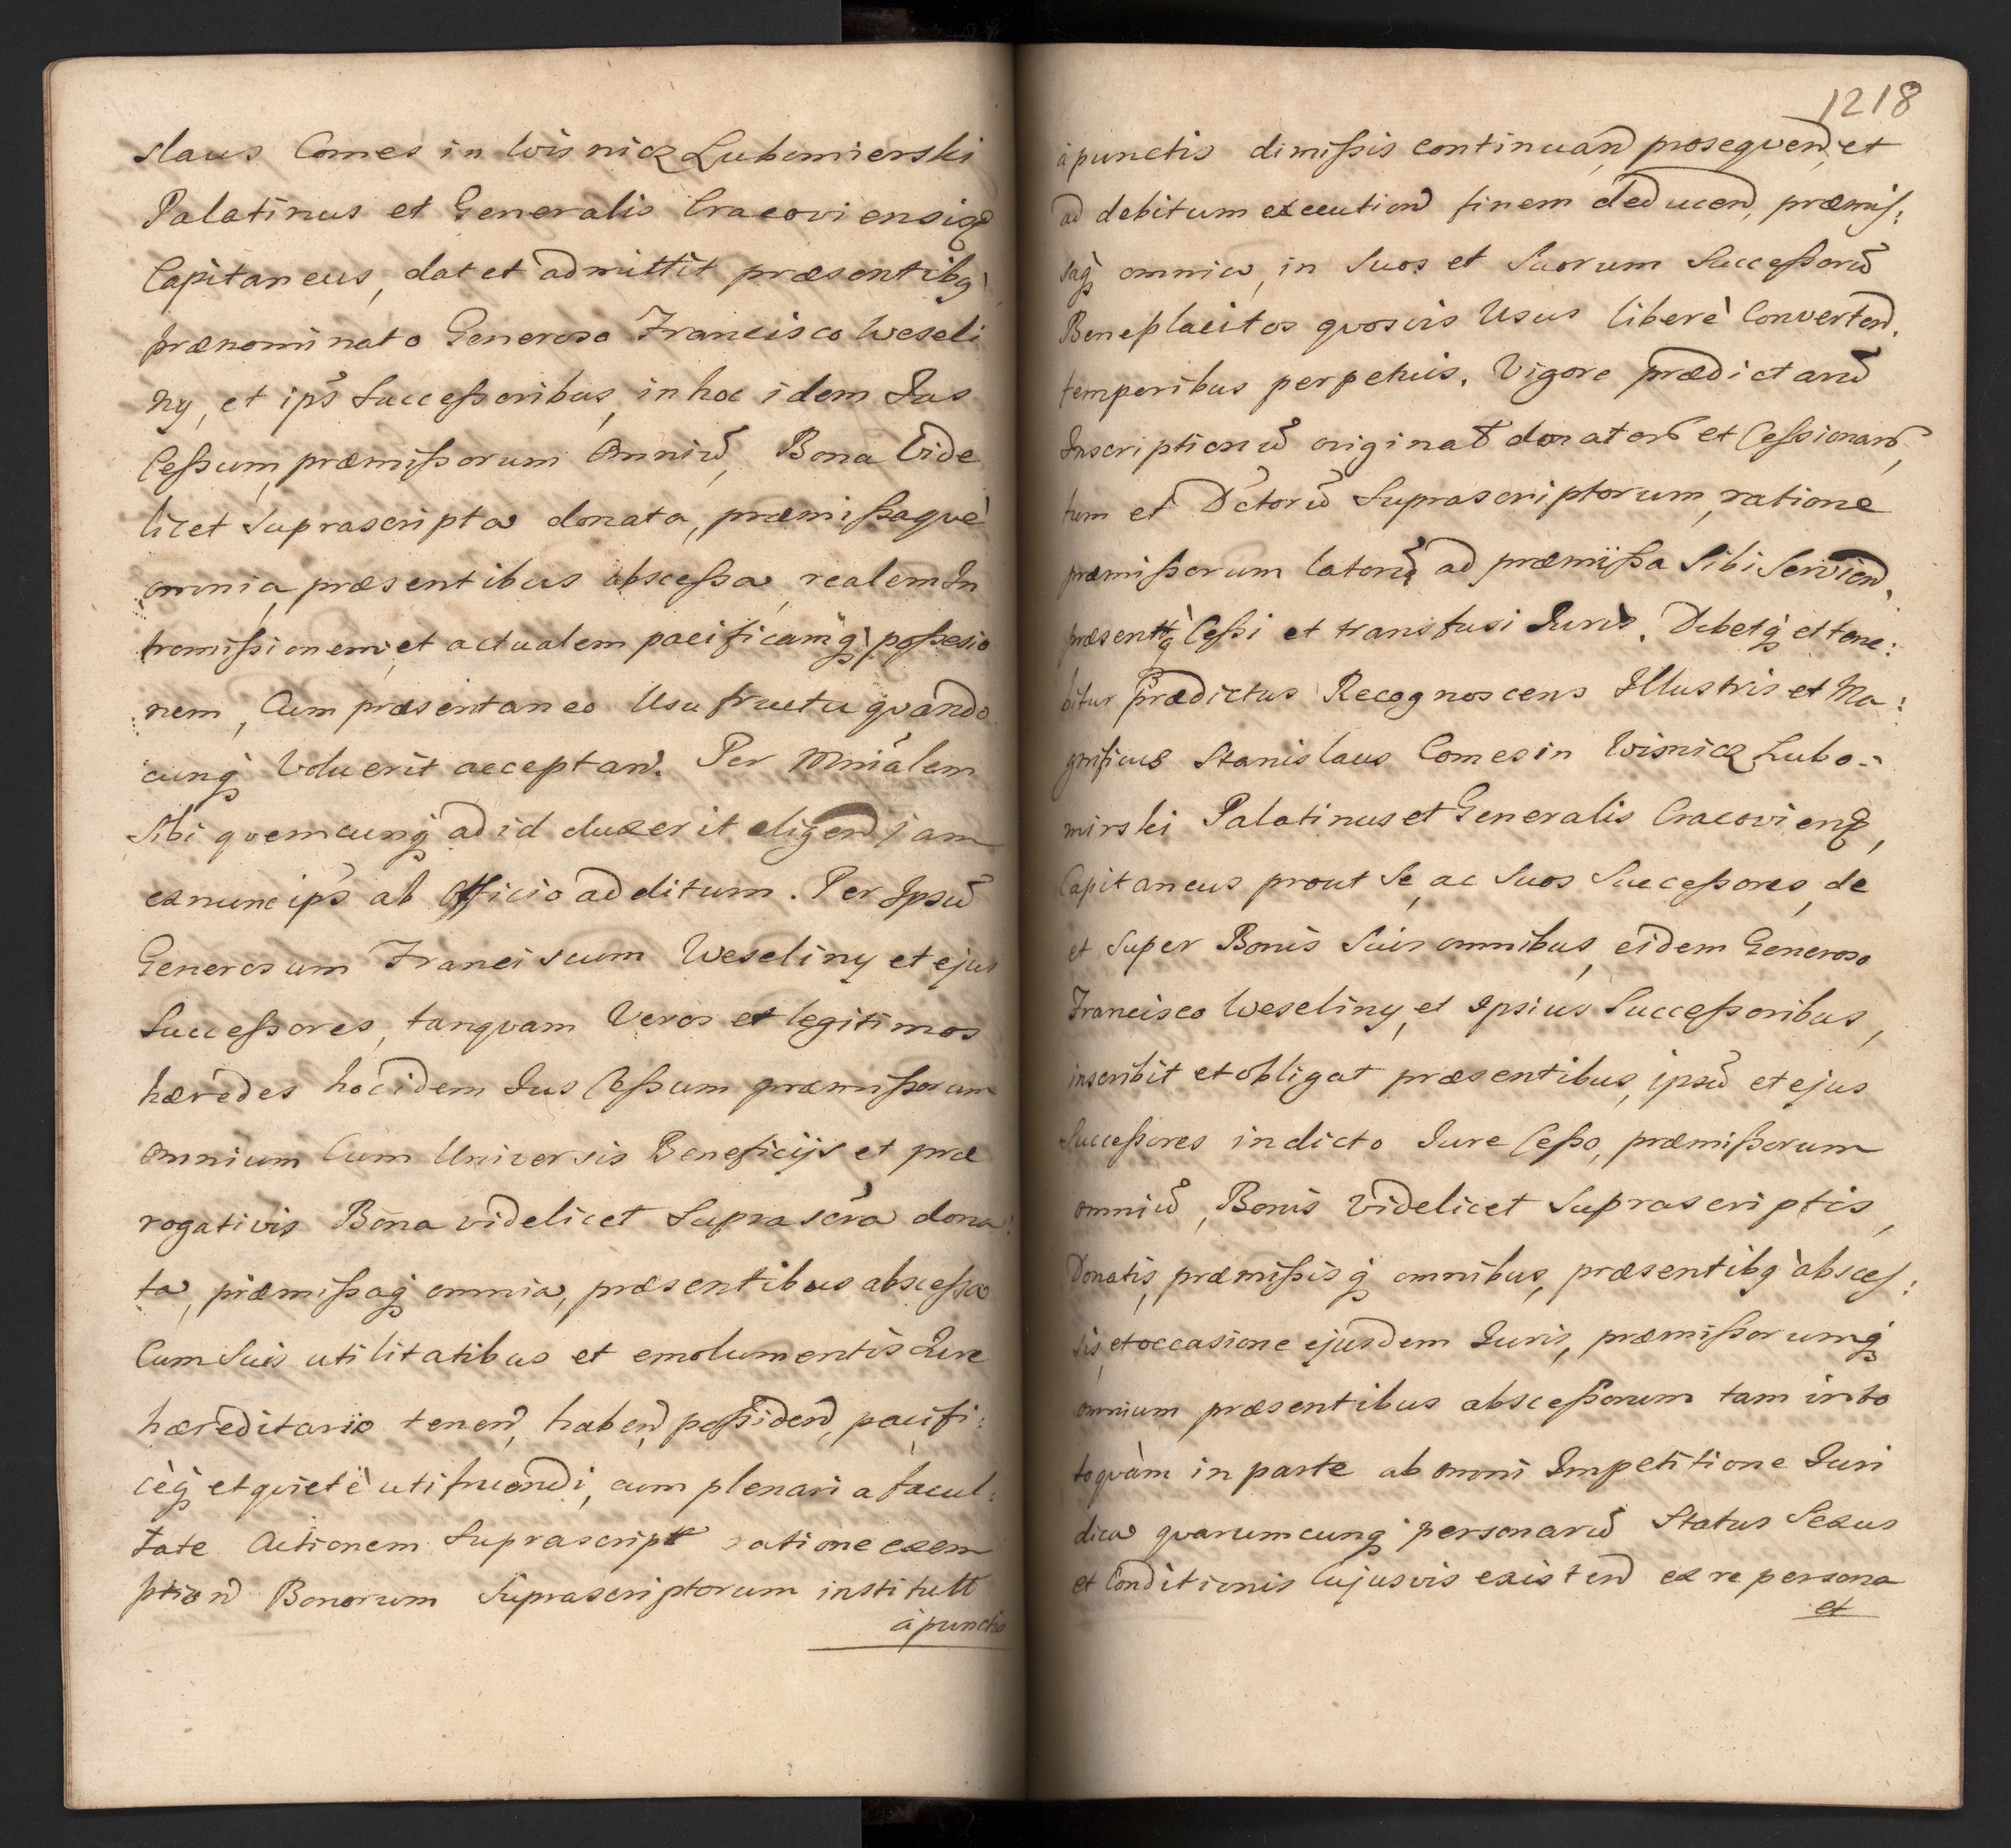 slaus Comes in Wisnicz Lubomierski
Palatinus et Generalis Cracoviensiq3
Capitaneus, dat et admittit præsentibq̀
prænominato Generoso Francisco Weseli
ny, et ips̃ Successoribus, in hoc idem Jus
Cessum, præmissorum Omniũ, Bona Vide
licet Suprascripta donata, præmissaquè
omnia, præsentibus abscessa, realem In
tromissionem et actualem pacificamq̀ possesio
nem, Cum præsentaneo Usufructu quando
cunq̀ Voluerit acceptan̄. Per Mniãlem
Sibi quemcunq̀ ad id duxerit eligen̄d jam
ex nunc ips̃ ab Officio additum. Per Ipsũ
Generosum Franciscum Weseliny et ejus
Successores, tanquam Veros et legitimos
hæredes hoc idem Jus Cessum præmissorum
omnium Cum Universis Beneficijs et præ
rogativis Bona videlicet Suprascr̃a dona:
ta, præmissaq̀ omnia, præsentibus abscessa
Cum Suis utilitatibus et emolumentis Jure
hæreditario tenen̄d, haben̄d possiden̄d, pacifi:
cèq̀ et quietè utifruendi, cum plenaria facul:
tate Actionem Suprascript ratione exem
ption̄ Bonorum Suprascriptorum institutt
à punctis
1218
à punctis dimissis continuan̄d, prosequen̄d, et
ad debitum execution̄ finem deducen̄d, præmis:
saq̀ omnia, in Suos et Suorum Successorũ
Beneplacitos quosvis Usus liberè Converten̄d.
temporibus perpetuis. Vigore prædictarũ
Inscriptionũ original donator̃ et Cessionar̃,
tum et Dctorũ Suprascriptorum, ratione
præmissorum latorũ ad præmissa Sibi Servien̄d,
præsenttq̀ Cessi et transfusi Juris. Debetq̀ et tene:
bitur Prædictus Recognoscens Illustris et Ma:
gnificus Stanislaus Comes in Wisnicz Lubo-
mirski Palatinus et Generalis Cracovienq3,
Capitaneus prout Se, ac Suos Successores, de
et Super Bonis Suis omnibus, eidem Generoso
Francisco Weseliny, et Ipsius Successoribus,
inscribit et obligat præsentibus, ipsũ et ejus
Successores in dicto Jure Cesso, præmissorum
omniũ, Bonis Videlicet Suprascriptis,
Donatis, præmissisq̀ omnibus, præsentibq̀ absces:
sis, et occasione ejusdem Juris, præmissorumq̀
omnium præsentibus abscessorum tam in to
to quàm in parte ab omni Impetitione Juri
dica quarumcunq̀ personarũ Status Sexus
et Conditionis Cujusvis existen̄d ex re persona
et